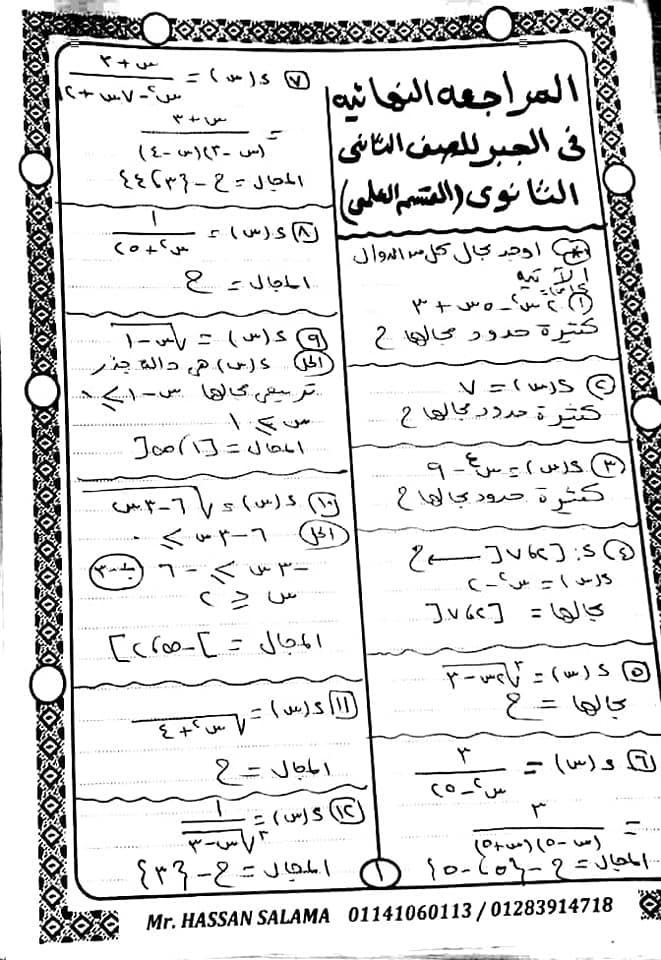 المراجعه النهائيه
فى الجبر للصف الثانى
الثانوى (القسم العلمى)
* اوجد مجال كل من الدوال
الآتيه
١) د(س) = ٢س٢ - ٥س + ٣
كثيرة حدود مجالها ح
٢) د(س) = ٧
كثيرة حدود مجالها ح
٣) د(س) = س٤ - ٩
كثيرة حدود مجالها ح
٤) د: [٢، ٧[ ← ح
د(س) = س٢ - ٢
مجالها = [٢، ٧[
٥) د(س) = ٣√(٢س - ٣)
مجالها = ح
٦) د(س) = ٣ / (س٢ - ٢٥)
= ٣ / (س - ٥)(س + ٥)
المجال = ح - {٥، -٥}
٧) د(س) = (س + ٣) / (س٢ - ٧س + ١٢)
= (س + ٣) / (س - ٣)(س - ٤)
المجال = ح - {٣، ٤}
٨) د(س) = ١ / (س٢ + ٢٥)
المجال = ح
٩) د(س) = √(س - ١)
الحل د(س) هى دالة جذر
تربيعى مجالها س - ١ ≥ ٠
س ≥ ١
المجال = [١، ∞[
١٠) د(س) = √(٦ - ٣س)
الحل ٦ - ٣س ≥ ٠
-٣س ≥ -٦ ÷-٣
س ≤ ٢
المجال = ]-∞، ٢]
١١) د(س) = √(س٢ + ٤)
المجال = ح
١٢) د(س) = ١ / ٣√(س - ٣)
المجال = ح - {٣}
١
Mr. HASSAN SALAMA 01141060113 / 01283914718